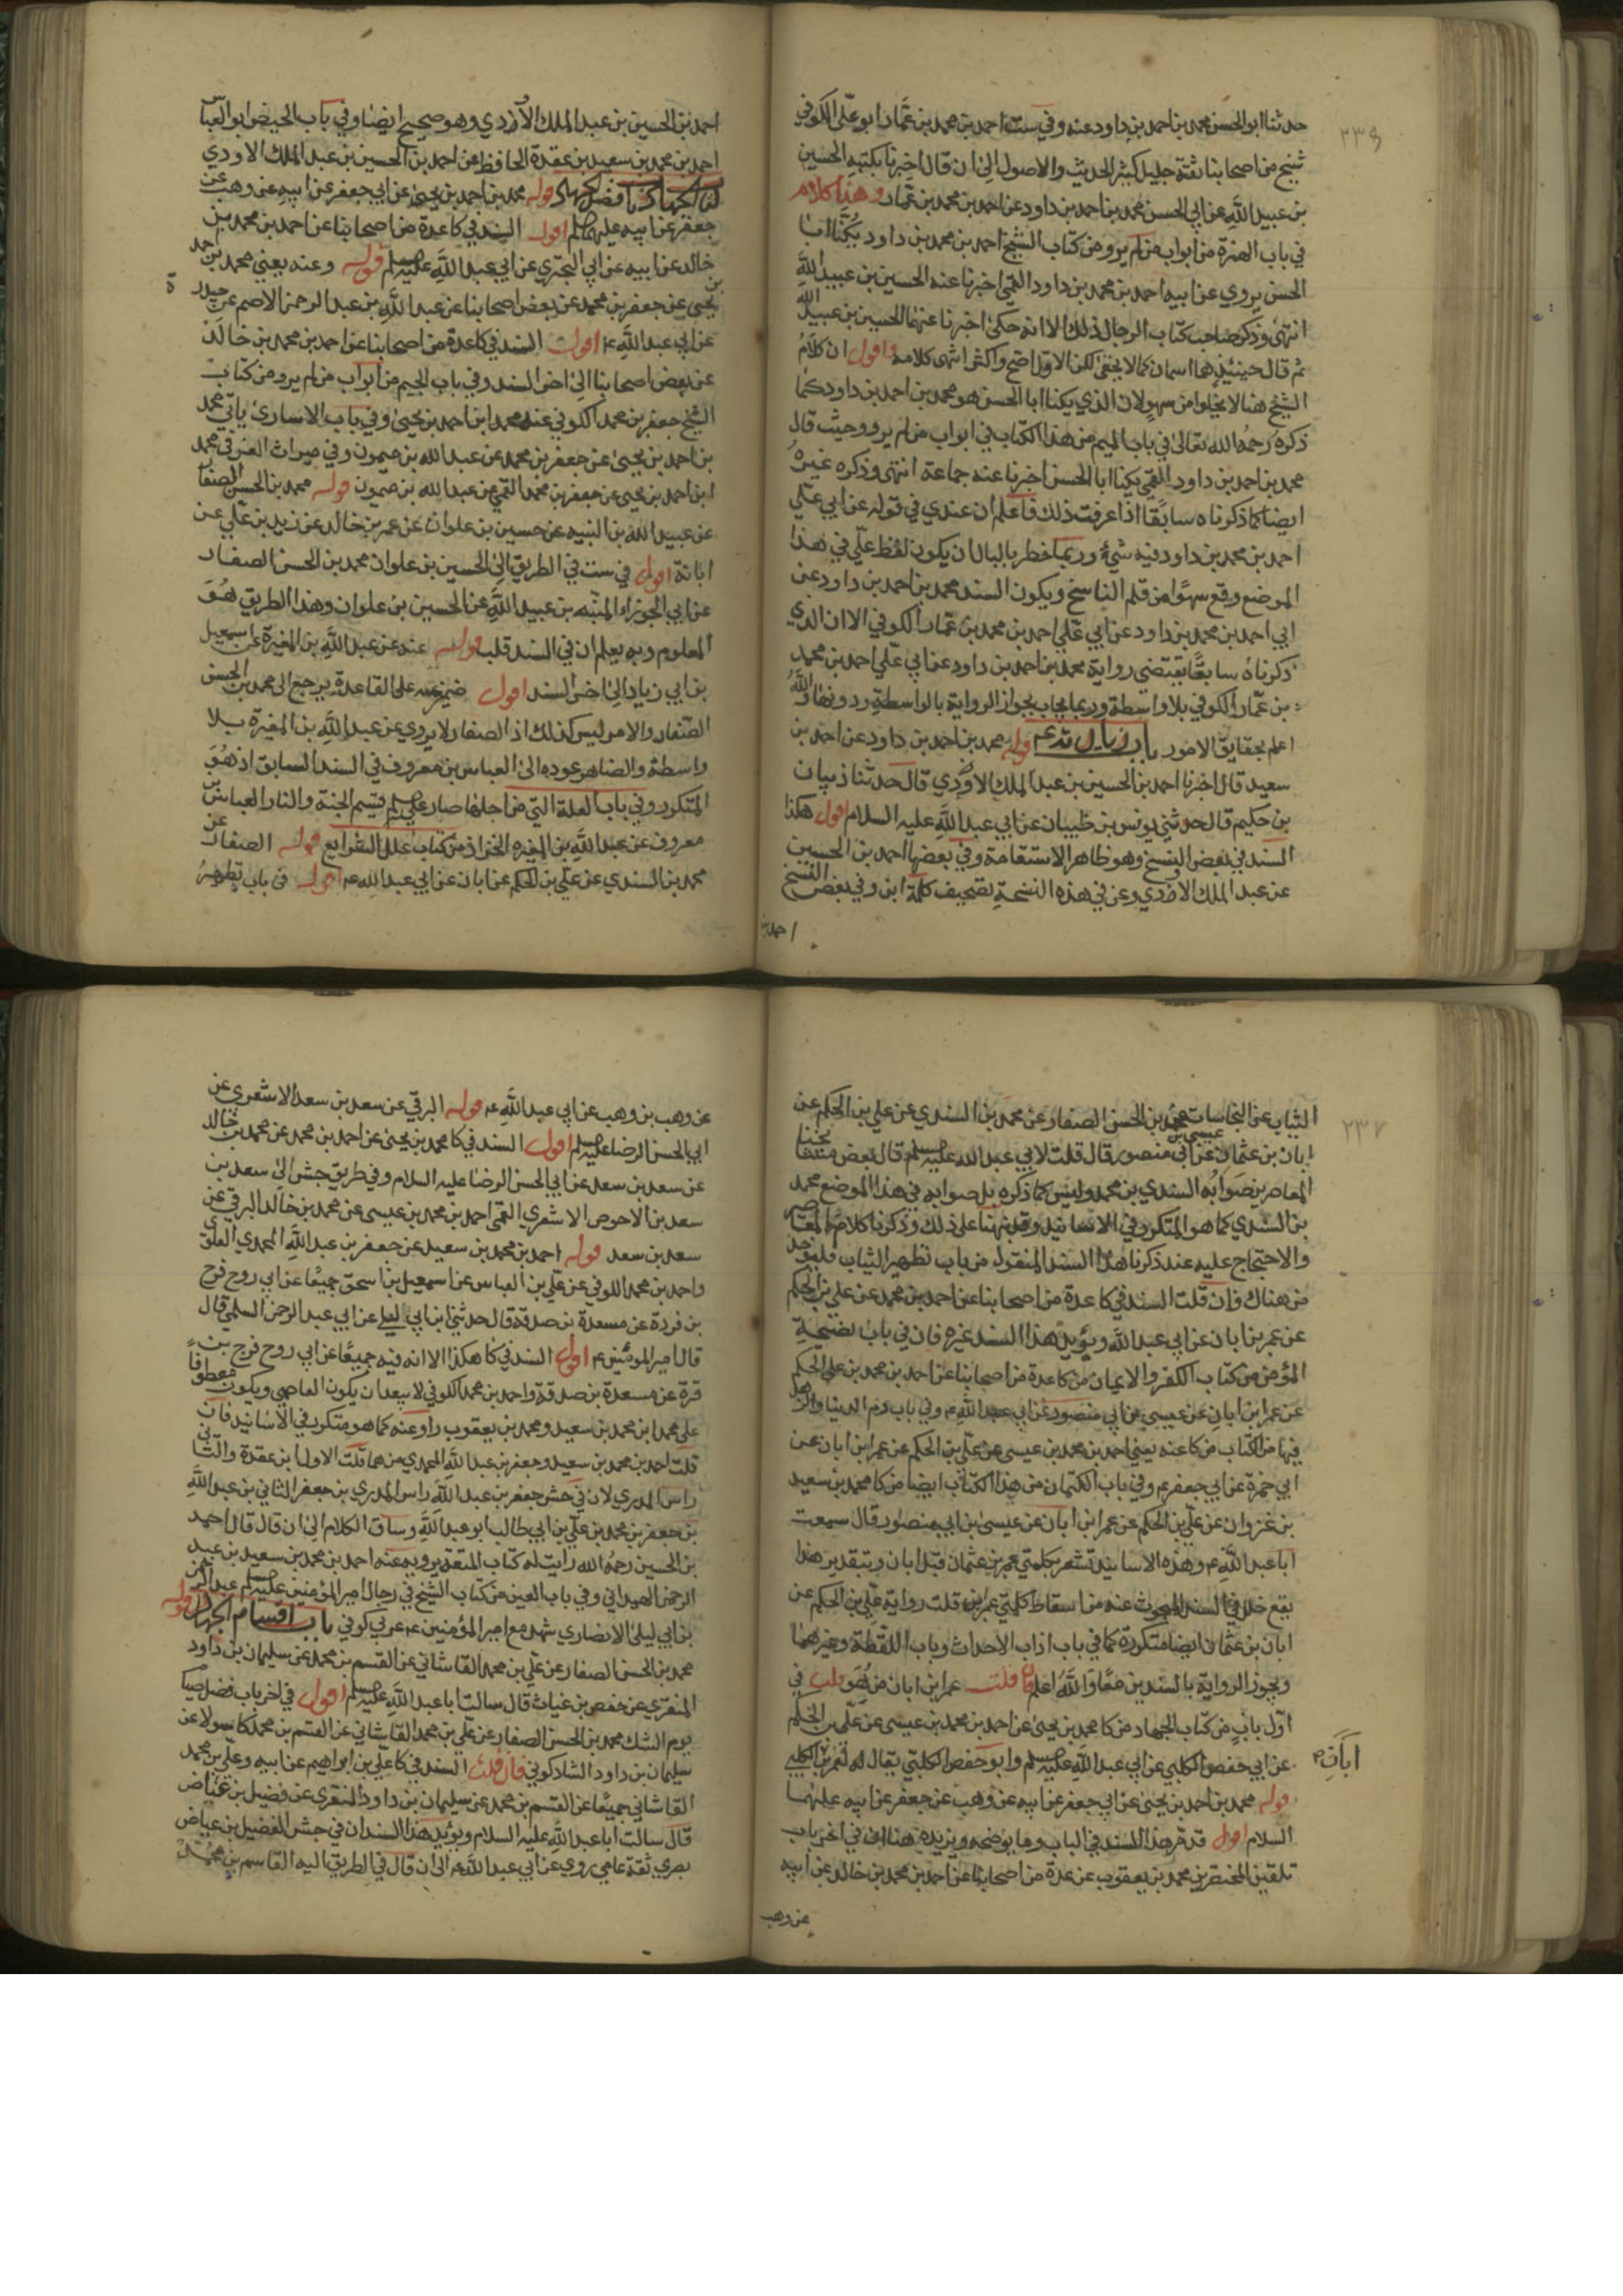 ٢٣٦
حدثنا ابو الحسن محمد بن احمد بن داود عنه وفي ست احمد بن محمد بن عمّار ابو علّى الكوفي
شيخ من اصحابنا ثقة جليل كثير الحديث والاصول الى ان قال اخبرنا بكتبه الحسين
بن عبيد اللّه عن ابي الحسن محمد بن احمد بن داود عن احمد بن محمد بن عمّار وهذا كلام
في باب الهمزة من ابواب من لم يرو من كتاب الشيخ احمد بن محمد بن داود يكنّا ابا
الحسن يروي عن ابيه احمد بن محمد بن داود القمي اخبرنا عنه الحسين بن عبيد اللّه
انتهى وذكر صاحب كتاب الرجال ذلك الا انه حكى اخبرنا عنهما الحسين بن عبيد اللّه
ثم قال حينئذ هما اسمان كما لا يخفى لكن الاول اصح واكثر انتهى كلامه واقول ان كلام
الشيخ هنا لا يخلوا من سهو لان الذي يكنا ابا الحسن هو محمد بن احمد بن داود كما
ذكره رحمه الله تعالى في باب الميم من هذا الكتاب في ابواب من لم يرو وحيث قال
محمد بن احمد بن داود القمي يكنا ابا الحسن اخبرنا عنه جماعة انتهى وذكره غيره
ايضا كما ذكرناه سابقا اذا عرفت ذلك فاعلم ان عندي في قوله عن ابي علّي
احمد بن محمد بن داود فيه شيء وربما خطر بالبال ان يكون لفظ علّي في هذا
الموضع وقع سهوًا من قلم الناسخ ويكون السند محمد بن احمد بن داود عن
ابي احمد بن محمد بن داود عن ابي علّي احمد بن محمد بن عمّار الكوفي الا ان الذي
ذكرناه سابقًا يقتضي رواية محمد بن احمد بن داود عن ابي علّي احمد بن محمد
بن عمّار الكوفي بلا واسطة وربما يجاب بجواز الرواية بالواسطة ودونها واللّه
اعلم بحقايق الامور باب زيارته عم قوله محمد بن احمد بن داود عن احمد بن
سعيد قال اخبرنا احمد بن الحسين بن عبد الملك الاودي قال حدثنا ذبيان
بن حكيم قال حدثني يونس بن ظبيان عن ابي عبد اللّه عليه السلام اقول هكذا
السند في بعض النسخ وهو ظاهر الاستقامة وفي بعضها احمد بن الحسين
عن عبد الملك الاودي وعن في هذه النسخة تصحيف كلمة ابن وفي بعض النسخ
احمد بن
احمد بن الحسين بن عبد الملك الازدي وهو صحيح ايضا وفي باب الحيض ابو العباس
احمد بن محمد بن سعيد بن عقدة الحافظ عن احمد بن الحسين بن عبد الملك الاودي
كتاب الجهاد باب فضل الجهاد قوله محمد بن احمد بن يحيى عن ابي جعفر عن ابيه عن وهب عن
جعفر عن ابيه عليهما السلم اقول السند في كا عدة من اصحابنا عن احمد بن محمد بن
خالد عن ابيه عن ابي البختري عن ابي عبد اللّه عليه السلم قوله وعنه يعني محمد بن احمد
بن يحيى عن جعفر بن محمد عن بعض اصحابنا عن عبد اللّه بن عبد الرحمن الاصم عن حيدرة
عن ابي عبد اللّه ع اقول السند في كا عدة من اصحابنا عن احمد بن محمد بن خالد
عن بعض اصحابنا الى اخر السند وفي باب الجيم من ابواب من لم يرو من كتاب
الشيخ جعفر بن محمد الكوفي عنه محمد ابن احمد بن يحيى وفي باب الاسارى ياتي محمد
بن احمد بن يحيى عن جعفر بن محمد عن عبد الله بن ميمون وفي ميراث الغرقى محمد
ابن احمد بن يحيى عن جعفر بن محمد القمي عن عبد الله بن ميمون قوله محمد بن الحسن الصفار
عن عبيد الله بن المنبه عن حسين بن علوان عن عمر بن خالد عن زيد بن علّي عن
ابائه اقول في ست في الطريق الى الحسين بن علوان محمد بن الحسن الصفار
عن ابي الجوزاء المنبّه بن عبيد اللّه عن الحسين بن علوان وهذا الطريق هو
المعلوم وبه يعلم ان في السند قلب قوله عنه عن عبد اللّه بن المغيرة عن اسمعيل
بن ابي زياد الى اخر السند اقول ضمير عنه على القاعدة يرجع الى محمد بن الحسن
الصّفار والامر ليس كذلك اذ الصفار لا يروي عن عبد اللّه بن المغيرة بلا
واسطة والظاهر عوده الى العباس بن معروف في السند السابق اذ هو
المتكرر وفي باب العلة التي من اجلها صار علي عليه السلم قسيم الجنة والنار العباس بن
معروف عن عبد اللّه بن المغيره الخزاز من كتاب علل الشرايع قوله الصفار عن
محمد بن السندي عن علّي بن الحكم عن ابان عن ابي عبد الله ع اقول في باب تطهير
٢٣٧
الثياب عن النجاسات محمد بن الحسن الصفار عن محمد بن السندي عن علي بن الحكم عن
ابان بن عثمان عن عيسى بن ابي منصور قال قلت لابي عبد الله عليه السلم قال بعض مشايخنا
المعاصرين صوابه السندي بن محمد وليس كما ذكره بل صوابه في هذا الموضع محمد
بن السندي كما هو المتكرر في الاسانيد وقد نبهنا على ذلك وذكرنا كلام المعاصر
والاحتجاج عليه عند ذكرنا هذا السند المنقول من باب تطهير الثياب فليؤخذ
من هناك فان قلت السند في كا عدة من اصحابنا عن احمد بن محمد عن علي بن الحكم
عن عمر بن ابان عن ابي عبد اللّه ويؤيد هذا السند غيره فان في باب نصيحة
المؤمن من كتاب الكفر والايمان من كا عدة من اصحابنا عن احمد بن محمد بن علي الحكم
عن عمر ابن ابان عن عيسى بن ابي منصور عن ابي عبد اللّه ع وفي باب ذم الدنيا والزهد
فيها من الكتاب من كا عنه يعني احمد بن محمد بن عيسى عن علّي بن الحكم عن عمر ابن ابان عن
ابي حمزة عن ابي جعفر ع وفي باب الكتمان من هذا الكتاب ايضا من كا محمد بن سعيد
بن غزوان عن علّي بن الحكم عن عمر ابن ابان عن عيسى بن ابي منصور قال سمعت
ابا عبد اللّه ع وهذه الاسانيد تشعر بكلمتي عمر بن عثمان قبل ابان وبتقدير هذا
يقع خلل في السند المبحوث عنه من اسقاط كلمتي عمر بن قلت رواية علّي بن الحكم عن
ابان بن عثمان ايضا متكررة كما في باب اداب الاحداث وباب اللقطة وغيرهما
ويجوز الرواية بالسندين معًا واللّه اعلم فان قلت عمر ابن ابان من هو قلت في
اوّل باب من كتاب الجهاد من كا محمد بن يحيى عن احمد بن محمد بن عيسى عن علّي بن الحكم
عن ابي حفص الكلبي عن ابي عبد اللّه عليه السلم وابو حفص الكلبي يقال له لعمر بن الكلبي
ابان ص
قوله محمد بن احمد بن يحيى عن ابي جعفر عن ابيه عن وهب عن جعفر عن ابيه عليهما
السلام اقول قد مّر هذا السند في الباب وما يوضحه ويزيده هنا ان في اخر باب
تلقين المحتضرين محمد بن يعقوب عن عدة من اصحابنا عن احمد بن محمد بن خالد عن ابيه
عن وهب
عن وهب بن وهب عن ابي عبد اللّه ع قوله البرقي عن سعد بن سعد الاشعري عن
ابي الحسن الرضا عليه السلم اقول السند في كا محمد بن يحيى عن احمد بن محمد عن محمد بن خالد
عن سعد بن سعد عن ابي الحسن الرضا عليه السلام وفي طريق جش الى سعد بن
سعد بن الاحوص الاشعري القمي احمد بن محمد بن عيسى عن محمد بن خالد البرقي عن
سعد بن سعد قوله احمد بن محمد بن سعيد عن جعفر بن عبد اللّه المحمدي العلوي
واحمد بن محمد الكوفي عن علّي بن العباس عن اسمعيل بن اسحق جميعًا عن ابي روح فرج
بن فروة عن مسعدة بن صدقة قال حدثني ابن ابي ليلى عن ابي عبد الرحمن السلمي قال
قال امير المؤمنين ع اقول السند في كا هكذا الا انه فيه جميعًا عن ابي روح فرج بن
قرة عن مسعدة بن صدقة واحمد بن محمد الكوفي لا يبعد ان يكون العاصمي ويكون معطوفًا
على محمد ابن محمد بن سعيد ومحمد بن يعقوب راو عنه كما هو متكرر في الاسانيد فان
قلت احمد بن محمد بن سعيد وجعفر بن عبد اللّه المحمدي من هما قلت الاول ابن عقدة والثاني
راس المدري لان في جش جعفر بن عبد اللّه راس المدري بن جعفر الثاني بن عبد اللّه
بن جعفر بن محمد بن علّي بن ابي طالب ابو عبد اللّه وساق الكلام الى ان قال قال احمد
بن الحسين رحمه الله رايت له كتاب المتعة يرويه عنه احمد بن محمد بن سعيد بن عبد
الرحمن الهمداني وفي باب العين من كتاب الشيخ في رجال امير المؤمنين عليه السلم عبد الرحمن
بن ابي ليلى الانصاري شهد مع امير المؤمنين ع عربي كوفي باب اقسام الجهاد قوله
محمد بن الحسن الصفار عن علّي بن محمد القاشاني عن القسم بن محمد عن سليمان بن داود
المنقري عن حفص بن غياث قال سالت ابا عبد اللّه عليه السلم اقول في اخر باب فضل صيام
يوم الشك محمد بن الحسن الصفار عن علّي بن محمد القاشاني عن القسم بن محمد كاسولا عن
سليمان بن داود الشاذكوني فان قلت السند في كا علّي بن ابراهيم عن ابيه وعلّي بن محمد
القاشاني جميعًا عن القسم بن محمد عن سليمان بن داود المنقري عن فضيل بن عياض
قال سالت ابا عبد اللّه عليه السلام ويؤيد هذا السند ان في جش الفضيل بن عياض
بصري ثقة عامي روى عن ابي عبد اللّه ع الى ان قال في الطريق اليه القاسم بن محمد